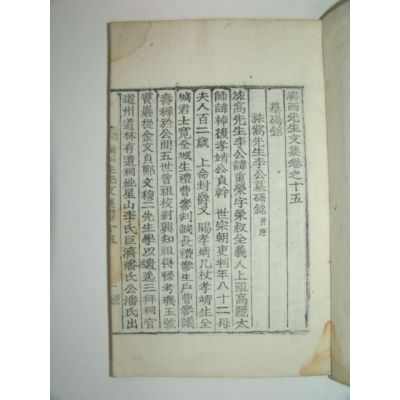 西先生文集卷之十五
墓碣銘
旅窩先生李公墓碣銘 并序
旅窩先生李公諱重慶字榮叔全義人上祖高麗太
師諱棹後孝靖公貞幹 世宗朝吏判年八十二母
夫人百二歲 上命封爵又 賜孝靖几杖孝靖生全
城君士寬全城生禮曹參判誠長禮參生戶曹參議
壽稚於公間五世曾祖校尉興知祖得祿考璣玉號
寶巖從金文貞鄭文穆二先生學以遺逸三拜祠官
道州道林有遺祠妣星山李氏巨濟潘氏公潘氏出